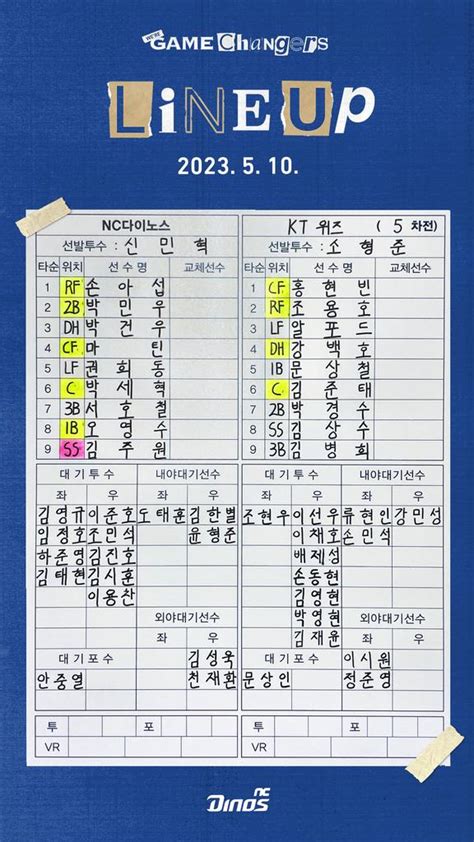 WE'RE
GAME CHANGERS
LINEUP
2023. 5. 10.
NC다이노스
선발투수 : 신 민 혁
타순 위치 선 수 명 교체선수
1 RF 손 아 섭
2 2B 박 민 우
3 DH 박 건 우
4 CF 마 틴
5 LF 권 희 동
6 C 박 세 혁
7 3B 서 호 철
8 1B 오 영 수
9 SS 김 주 원
대 기 투 수 내야대기선수
좌 우 좌 우
김영규 이준호 도태훈 김한별
임정호 조민석 윤형준
하준영 김진호
김태현 김시훈
이용찬
외야대기선수
좌 우
대 기 포 수 김성욱
안중열 천재환
투 포
VR
KT 위즈 ( 5 차전)
선발투수 : 소 형 준
타순 위치 선 수 명 교체선수
1 CF 홍 현 빈
2 RF 조 용 호
3 LF 알 포 드
4 DH 강 백 호
5 1B 문 상 철
6 C 김 준 태
7 2B 박 경 수
8 SS 김 상 수
9 3B 김 병 희
대 기 투 수 내야대기선수
좌 우 좌 우
조현우 이선우 류현인 강민성
이채호 손민석
배제성
손동현
김영현
박영현 외야대기선수
김재윤 좌 우
대 기 포 수 이시원
문상인 정준영
투 포
VR
NC
DINOS